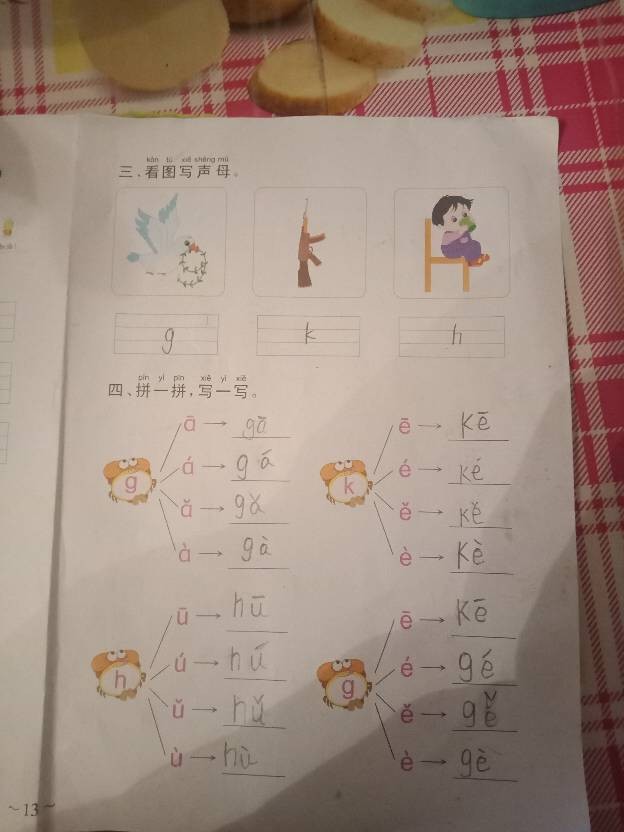 kàn tú xiě shēng mǔ
三、看图写声母。
g k h
pīn yi pīn xiě yi xiě
四、拼一拼，写一写。
ā → gā ē → kē
g á → gá k é → ké
ǎ → gǎ ě → kě
à → gà è → kè
ū → hū ē → kē
h ú → hú g é → gé
ǔ → hǔ ě → gě
ù → hù è → gè
~13~